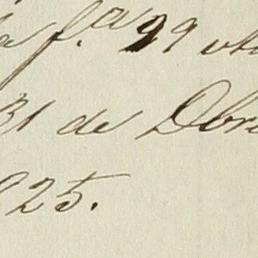 f.ª 99
31 de Dbr
925.